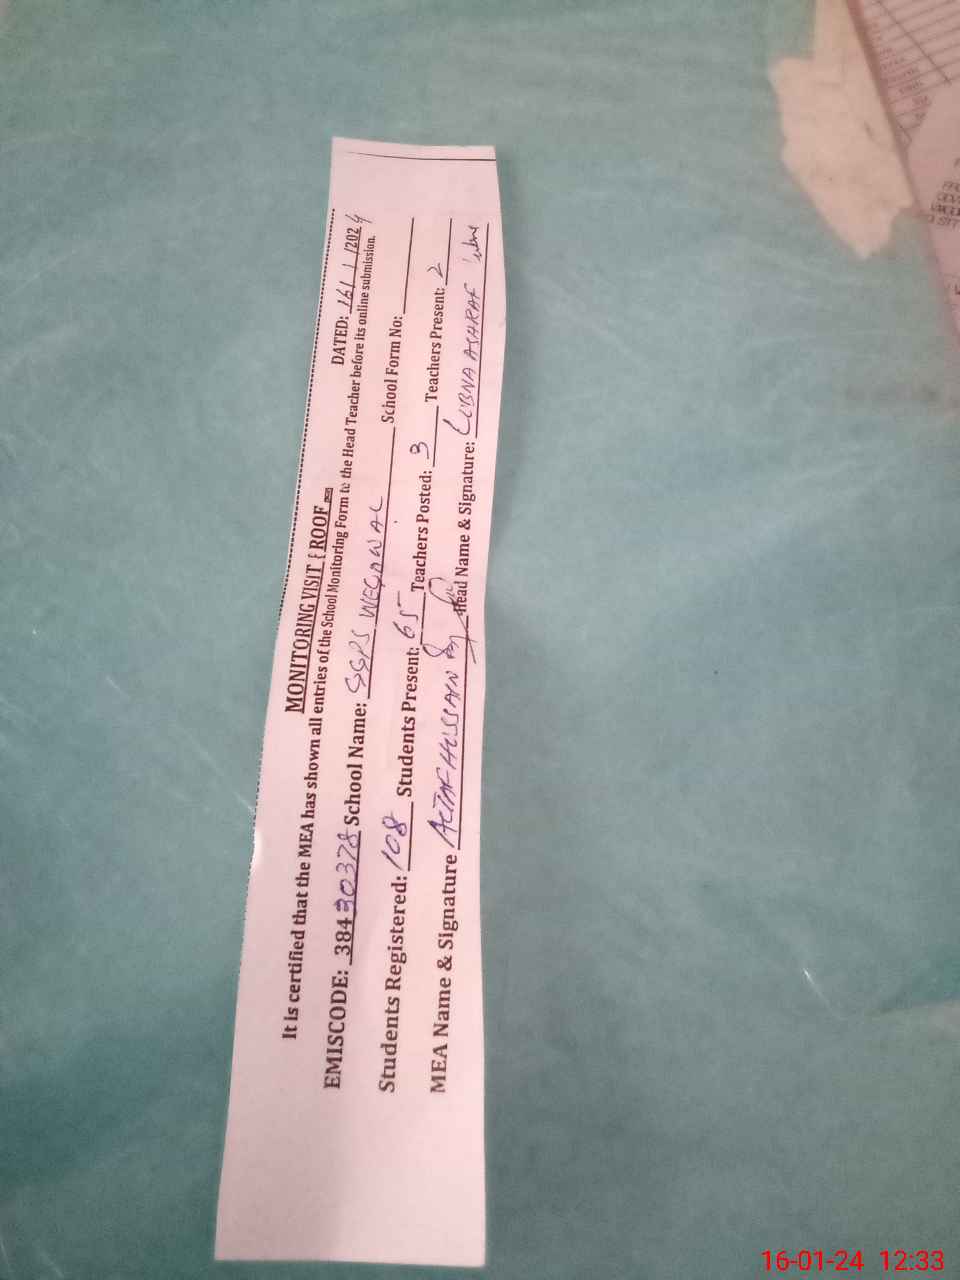 MONITORING VISIT PROOF
DATED: 16/1/2024
It is certified that the MEA has shown all entries of the School Monitoring Form to the Head Teacher before its online submission.
EMISCODE: 38430378 School Name: GGPS WEGOWAL School Form No:
Students Registered: 108 Students Present: 65 Teachers Posted: 3 Teachers Present: 2
MEA Name & Signature ALTAF HUSSAIN Head Name & Signature: LUBNA ASHRAF
16-01-24 12:33